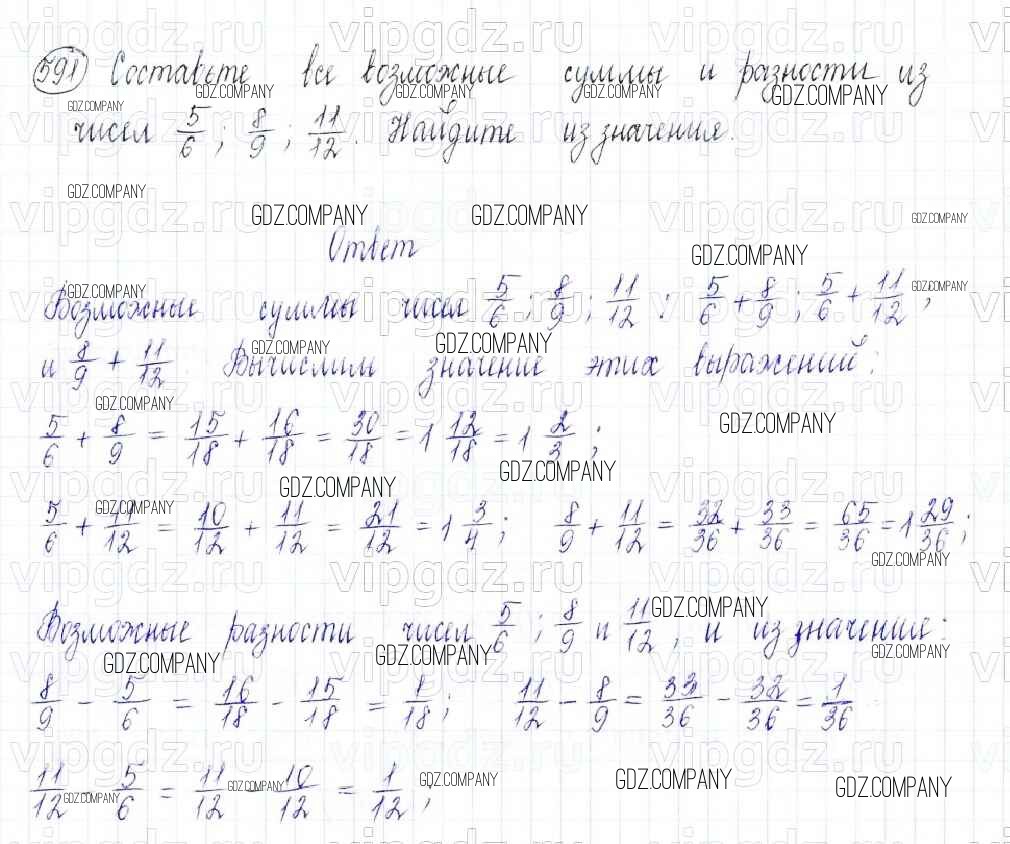 591 Составьте все возможные суммы и разности из
чисел 5/6 ; 8/9 ; 11/12. Найдите из значения.
Ответ
Возможные суммы чисел 5/6 ; 8/9 ; 11/12 : 5/6 + 8/9 ; 5/6 + 11/12 ;
и 8/9 + 11/12. Вычислим значение этих выражений:
5/6 + 8/9 = 15/18 + 16/18 = 30/18 = 1 12/18 = 1 2/3 ;
5/6 + 11/12 = 10/12 + 11/12 = 21/12 = 1 3/4 ; 8/9 + 11/12 = 32/36 + 33/36 = 65/36 = 1 29/36 ;
Возможные разности чисел 5/6 ; 8/9 и 11/12 , и из значение:
8/9 - 5/6 = 16/18 - 15/18 = 1/18 ; 11/12 - 8/9 = 33/36 - 32/36 = 1/36
11/12 - 5/6 = 11/12 - 10/12 = 1/12 ;
vipgdz.ru
GDZ.COMPANY